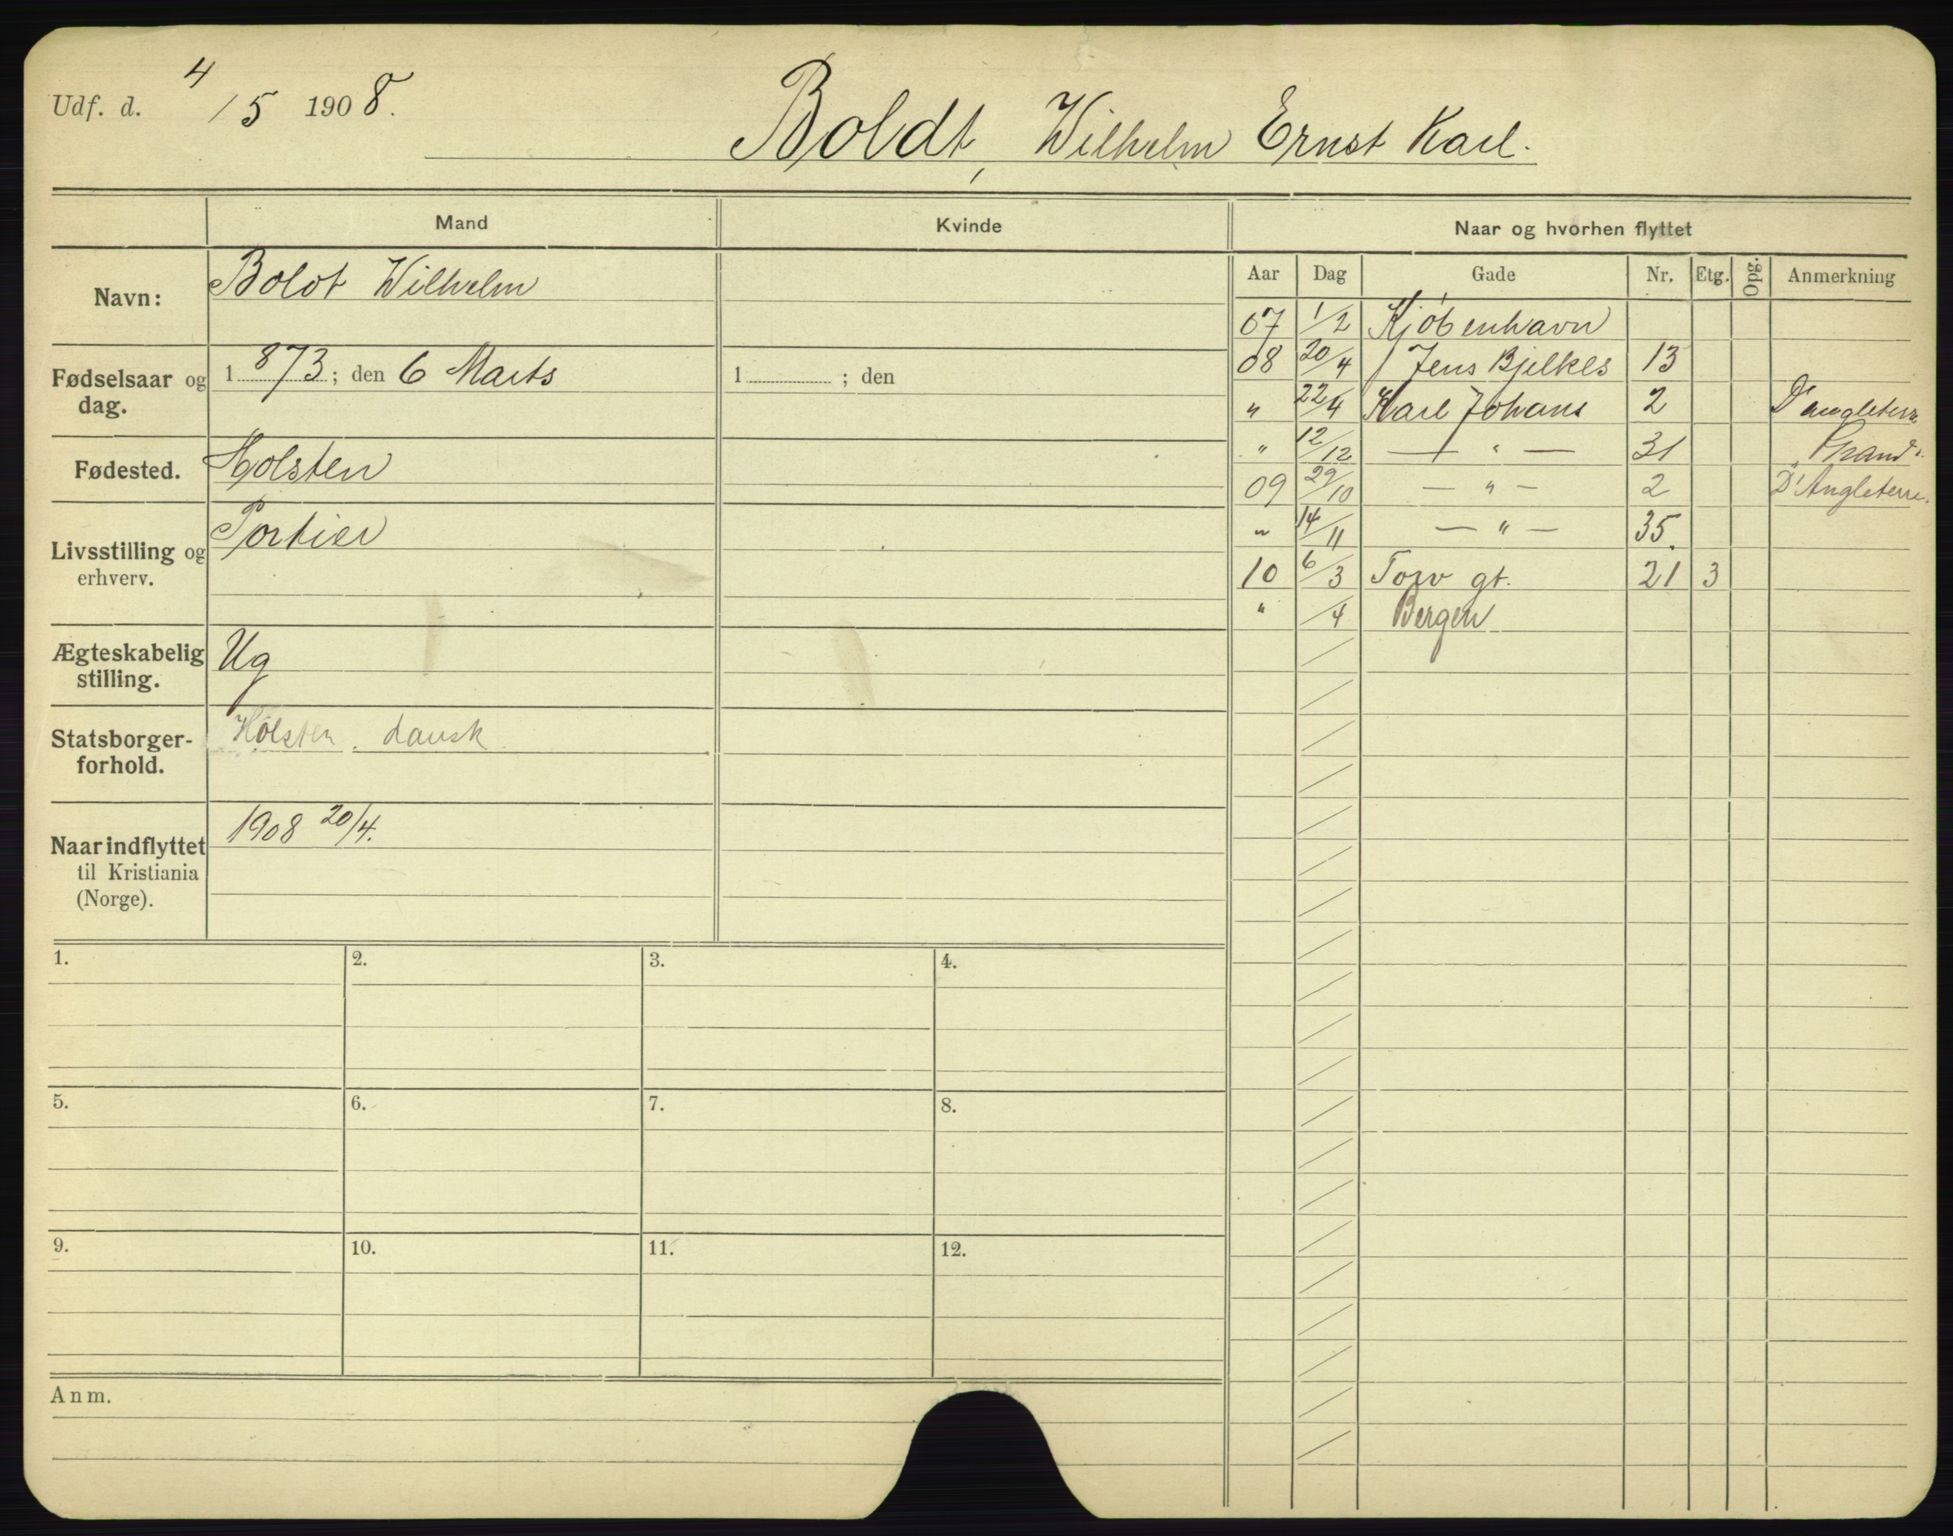 Udf. d. 4/5 1908.
Boldt, Wilhelm Ernst Karl.
Mand
Kvinde
Naar og hvorhen flyttet
Navn: Boldt Wilhelm
Fødselsaar og dag. 1873; den 6 Marts
1 ; den
Fødested. Holsten
Livsstilling og erhverv. Portier
Ægteskabelig stilling. Ug
Statsborgerforhold. Holsten. dansk
Naar indflyttet til Kristiania (Norge). 1908 20/4.
Aar Dag Gade Nr. Etg. Opg. Anmerkning
07 1/2 Kjøbenhavn
08 20/4 Jens Bjelkes 13
" 22/4 Karl Johans 2 D'angleterre
" 12/12 — " — 31 Grand
09 29/10 — " — 2 D'Angleterre.
" 14/11 — " — 35.
10 6/3 Torv gt. 21 3
" /4 Bergen
1. 2. 3. 4.
5. 6. 7. 8.
9. 10. 11. 12.
Anm.